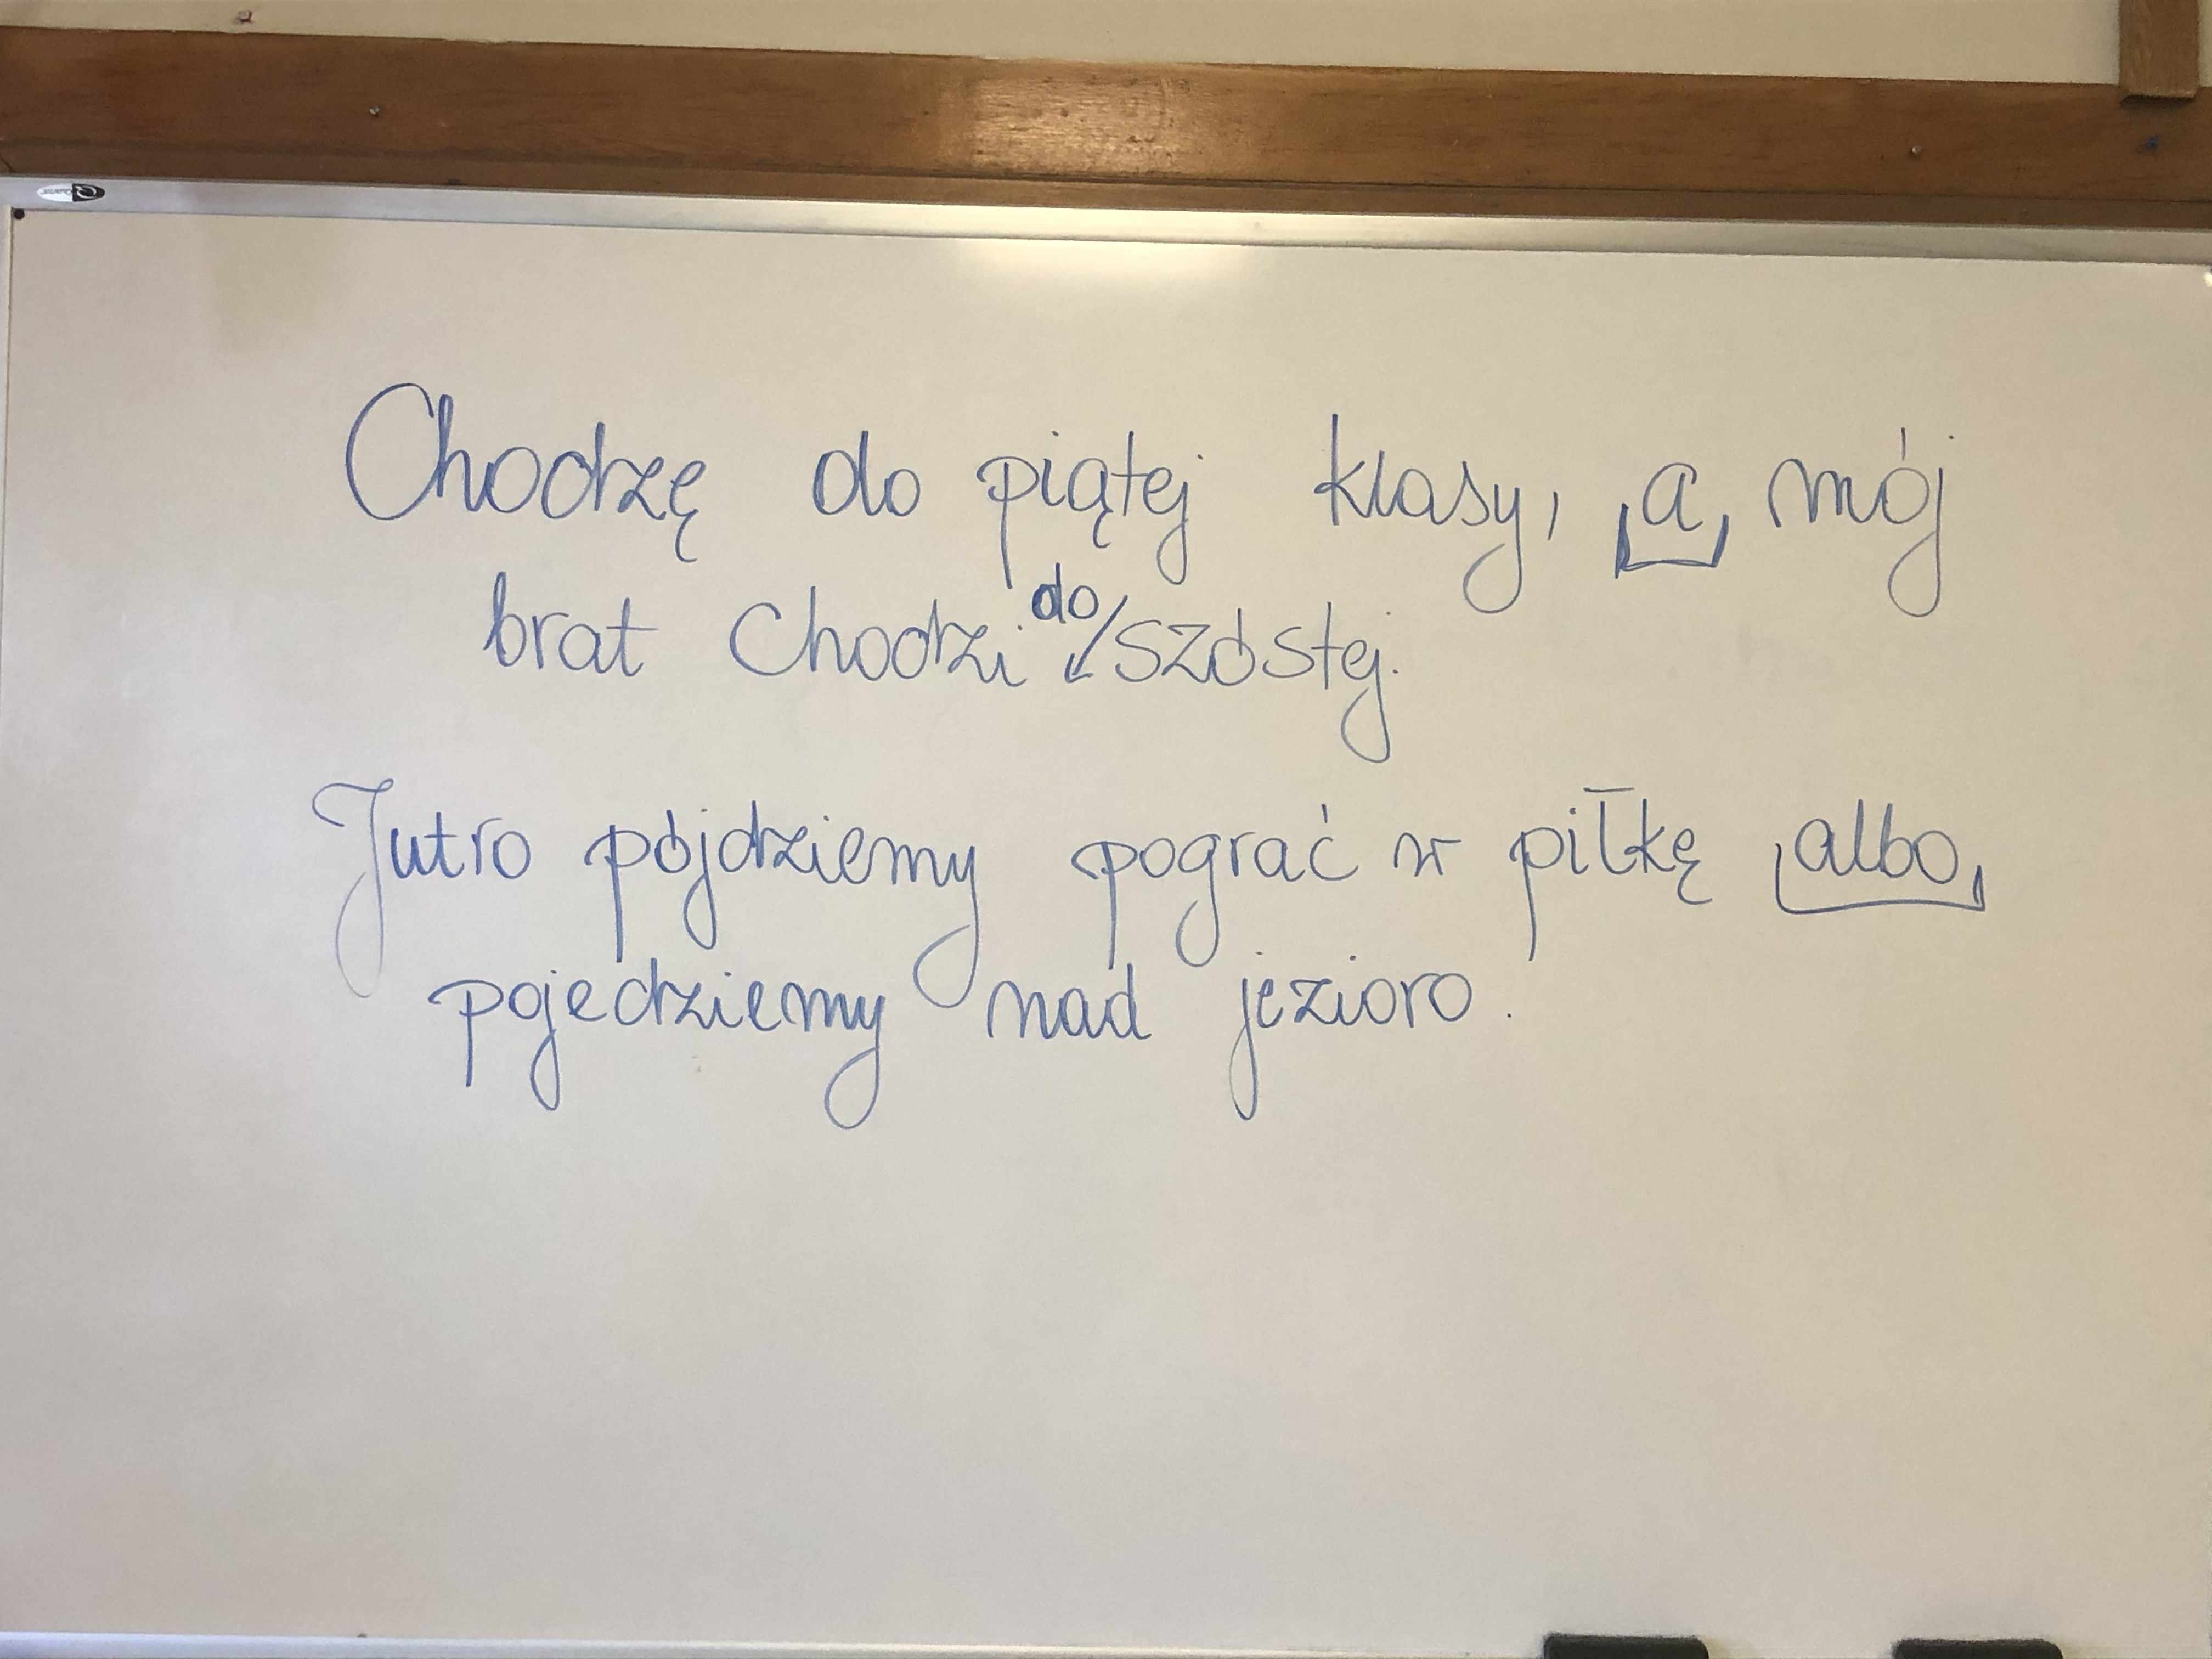 Chodzę do piątej klasy, a mój
brat chodzi do szóstej.
Jutro pójdziemy pograć w piłkę albo
pojedziemy nad jezioro.